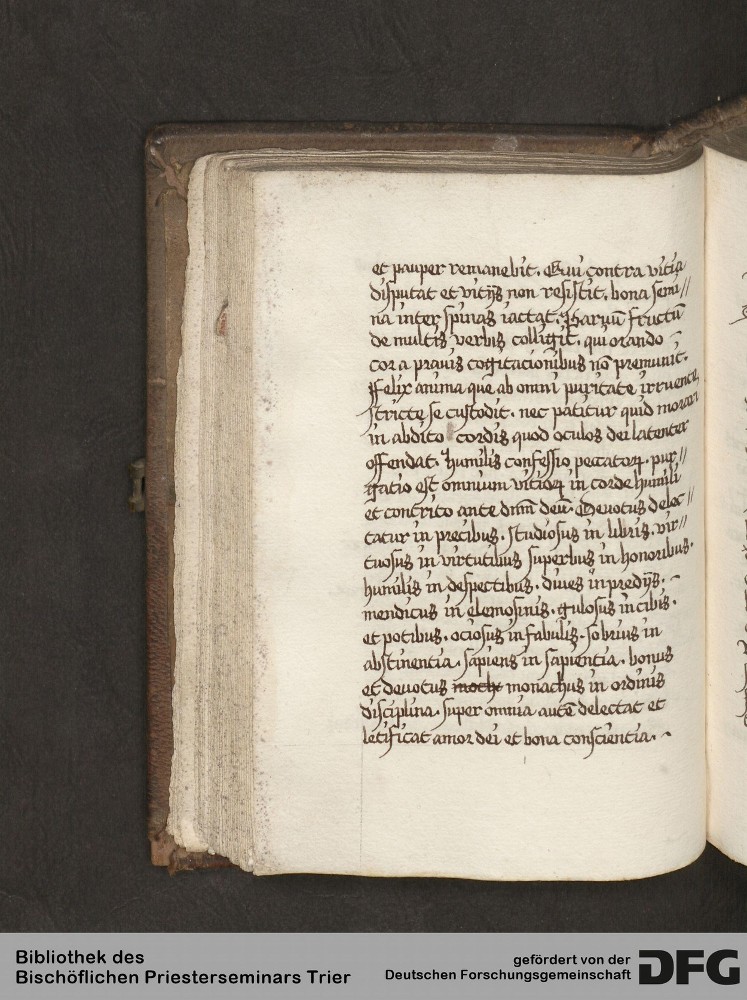 et pauper remanebit. Qui contra vitia
disputat et vitijs non resistit. bona semi//
na inter spinas iactat. Paruū fructū
de multis verbis colligit. qui orando
cor a prauis cogitacionibus nō premunit.
Ffelix anima que ab omni puritate irruenti
stricte se custodit. nec patitur quid morari
in abdito cordis quod oculos dei latenter
offendat. humilis confessio peccatoꝝ. pur//
gatio est omnium vitioꝝ in corde humili
et contrito ante dnm̄ deū. Deuotus delec//
tatur in precibus. studiosus in libris. vir//
tuosus in virtutibus superbus in honoribus.
humilis in despectibus. diues in predijs.
mendicus in elemosinis. gulosus in cibis.
et potibus. ociosus in fabulis. sobrius in
abstinentia. sapiens in sapientia. bonus
et deuotus moch monachus in ordinis
disciplina. super omnia autē delectat et
letificat amor dei et bona conscientia.
Bibliothek des
Bischöflichen Priesterseminars Trier
gefördert von der
Deutschen Forschungsgemeinschaft
DFG